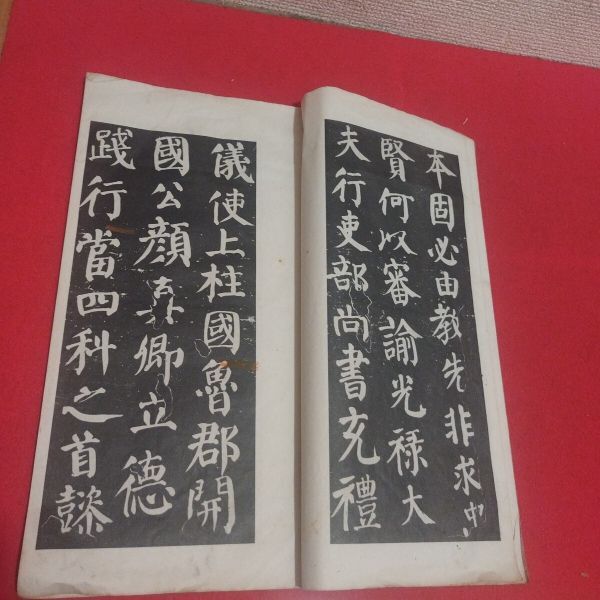 本固必由教先非求忠
賢何以審諭光祿大
夫行吏部尚書充禮
儀使上柱國魯郡開
國公顏真卿立德
踐行當四科之首懿